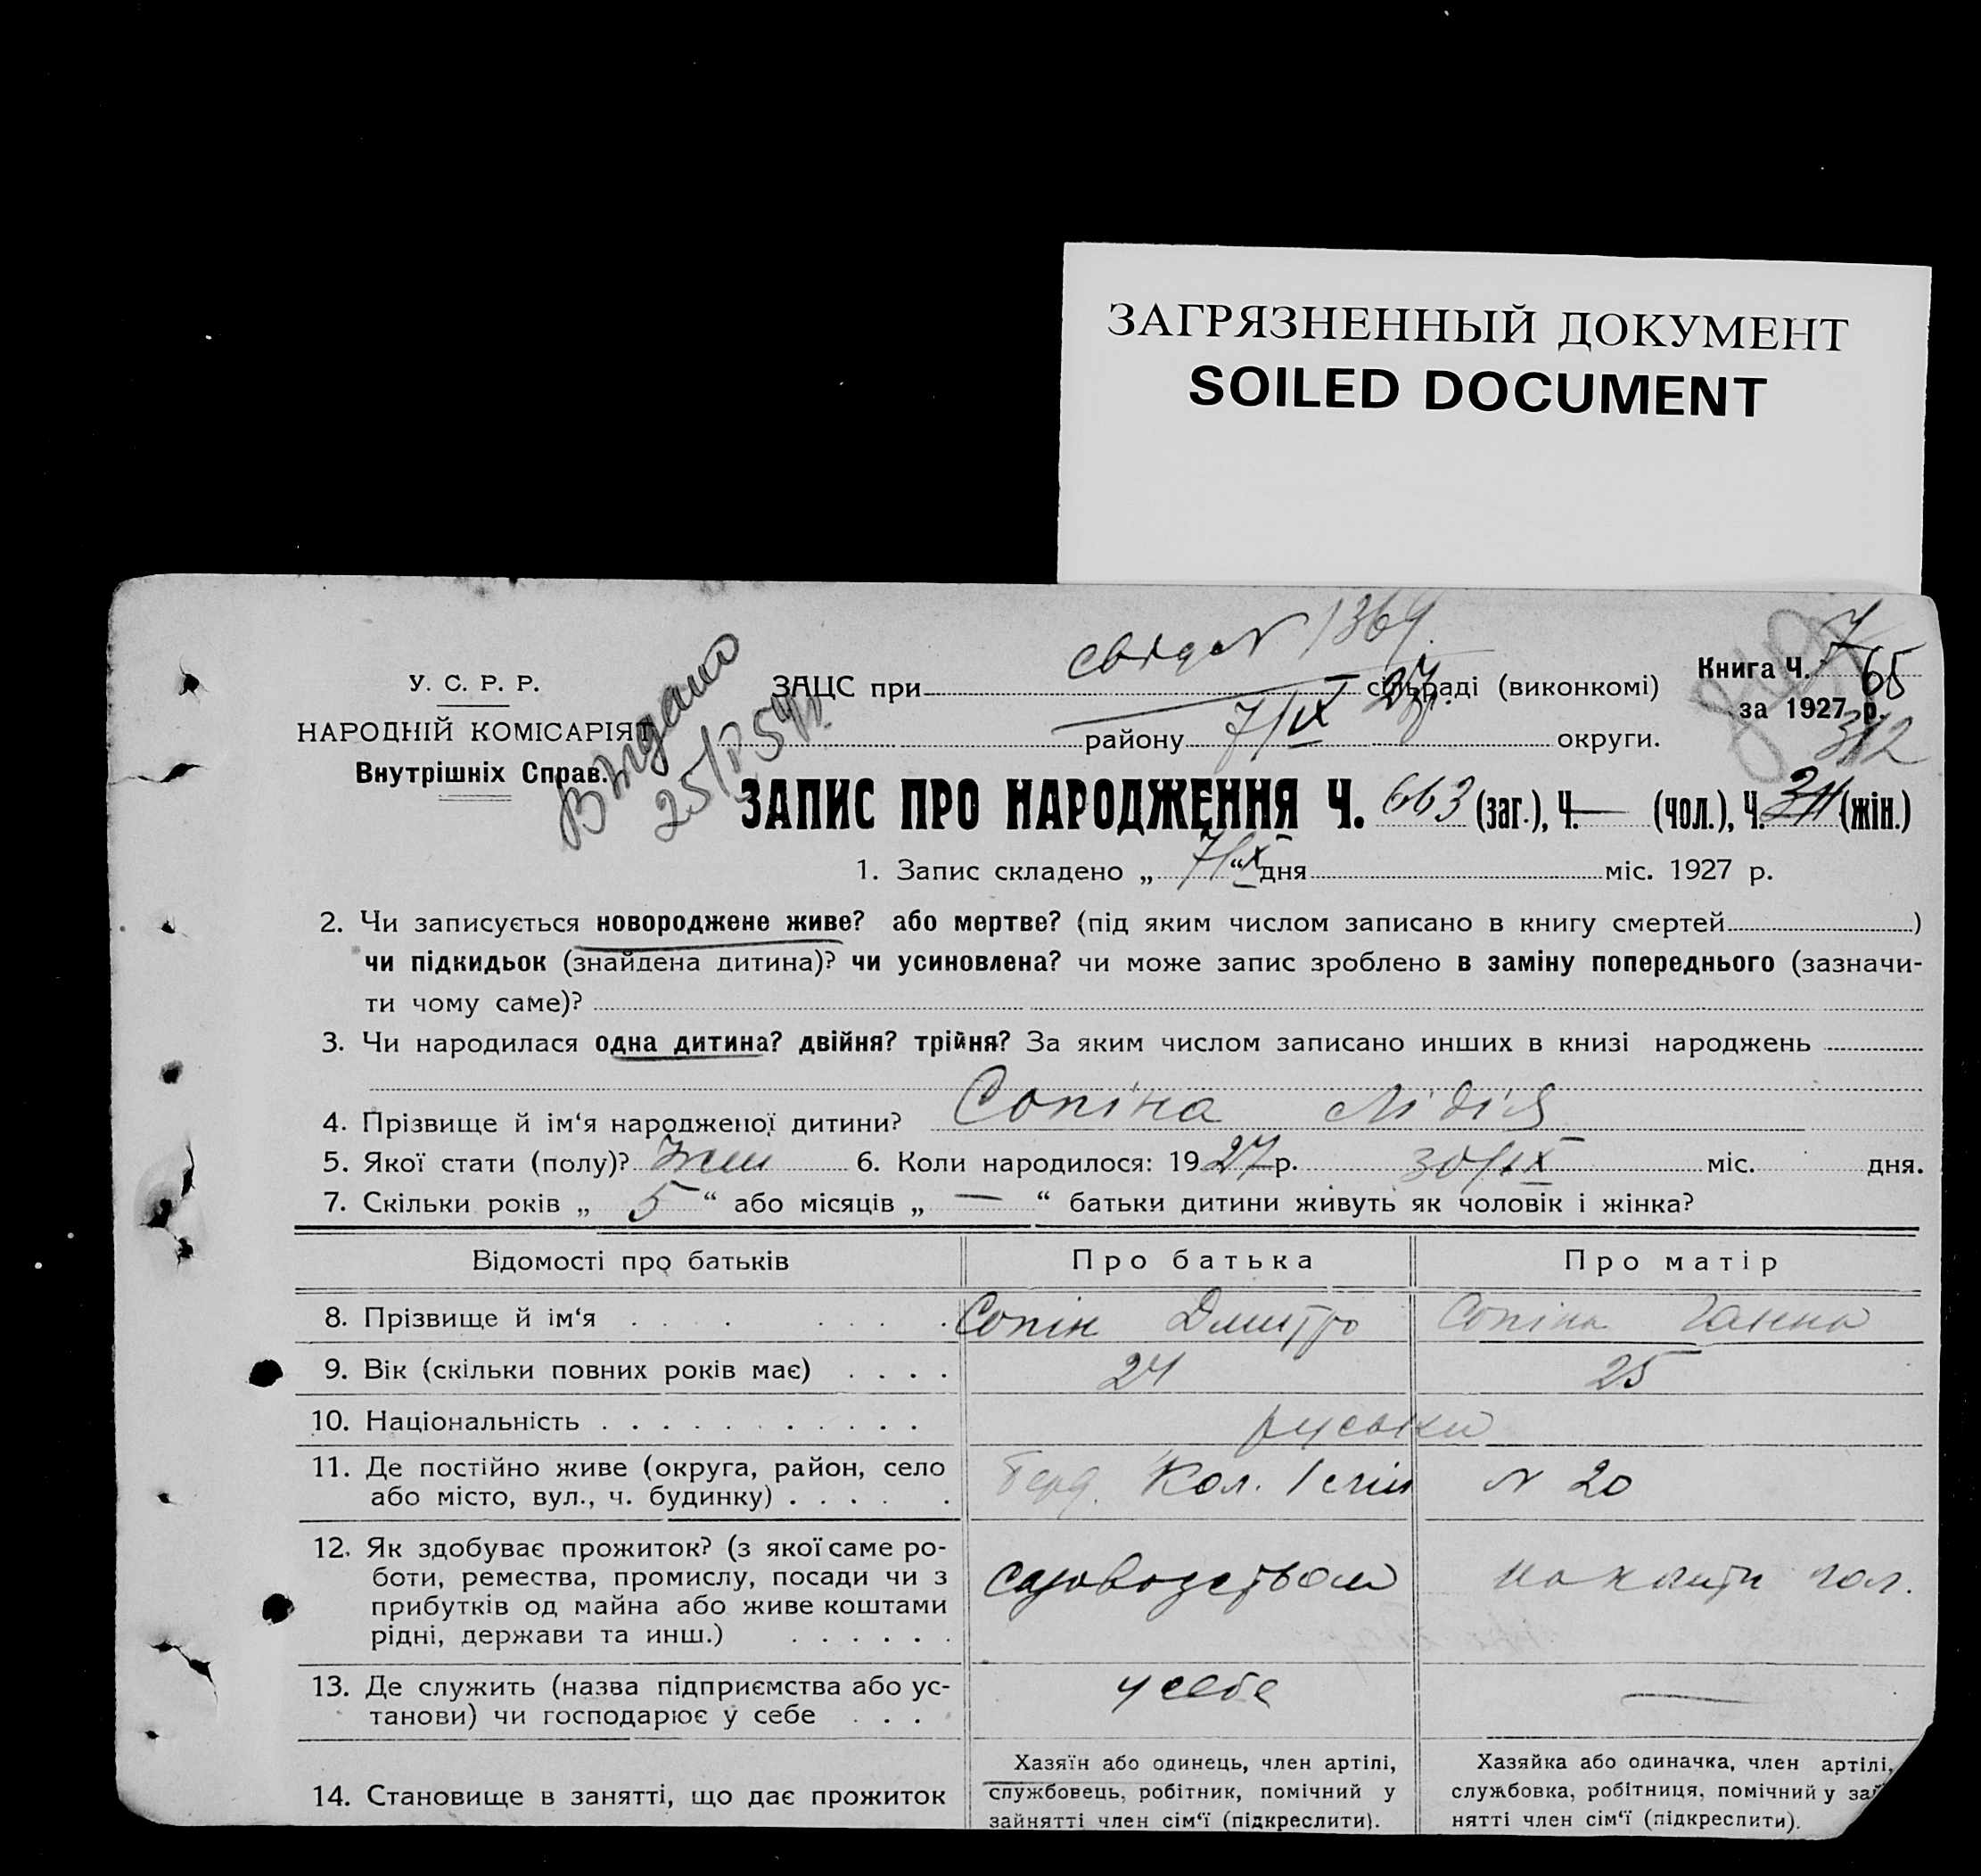 ЗАГРЯЗНЕННЫЙ ДОКУМЕНТ
SOILED DOCUMENT
свід N 1369.
Книга Ч. 7
65
за 1927 р.
312
У. С. Р. Р.
НАРОДНІЙ КОМІСАРІЯТ
Внутрішніх Справ.
Видано
ЗАЦС при сільраді (виконкомі)
району 7/IX 27 округи.
ЗАПИС ПРО НАРОДЖЕННЯ Ч. 663 (заг.), Ч. — (чол.), Ч. (жін.)
1. Запис складено „ 7/X “ дня міс. 1927 р.
2. Чи записується новороджене живе? або мертве? (під яким числом записано в книгу смертей )
чи підкидьок (знайдена дитина)? чи усиновлена? чи може запис зроблено в заміну попереднього (зазначи-
ти чому саме)?
3. Чи народилася одна дитина? двійня? трійня? За яким числом записано инших в книзі народжень
4. Прізвище й ім‘я народженої дитини? Сопіна Лідія
5. Якої стати (полу)? Жін 6. Коли народилося: 1927 р. 30/IX міс. дня.
7. Скільки років „ 5 “ або місяців „ — “ батьки дитини живуть як чоловік і жінка?
Відомості про батьків Про батька Про матір
8. Прізвище й ім‘я . . . . . . . . Сопін Дмитро Сопіна Ганна
9. Вік (скільки повних років має) . . . . 24 25
10. Національність . . . . . . . . . . . руські
11. Де постійно живе (округа, район, село
або місто, вул., ч. будинку) . . . . . Кол. N 20
12. Як здобуває прожиток? (з якої саме ро-
боти, ремества, промислу, посади чи з
прибутків од майна або живе коштами
рідні, держави та инш.) . . . . . .
садоводством
13. Де служить (назва підприємства або ус-
танови) чи господарює у себе . . . у себе —
14. Становище в занятті, що дає прожиток
Хазяїн або одинець, член артілі,
службовець, робітник, помічний у
зайнятті член сім‘ї (підкреслити).
Хазяйка або одиначка, член артілі,
службовка, робітниця, помічний у зай
нятті член сім‘ї (підкреслити).